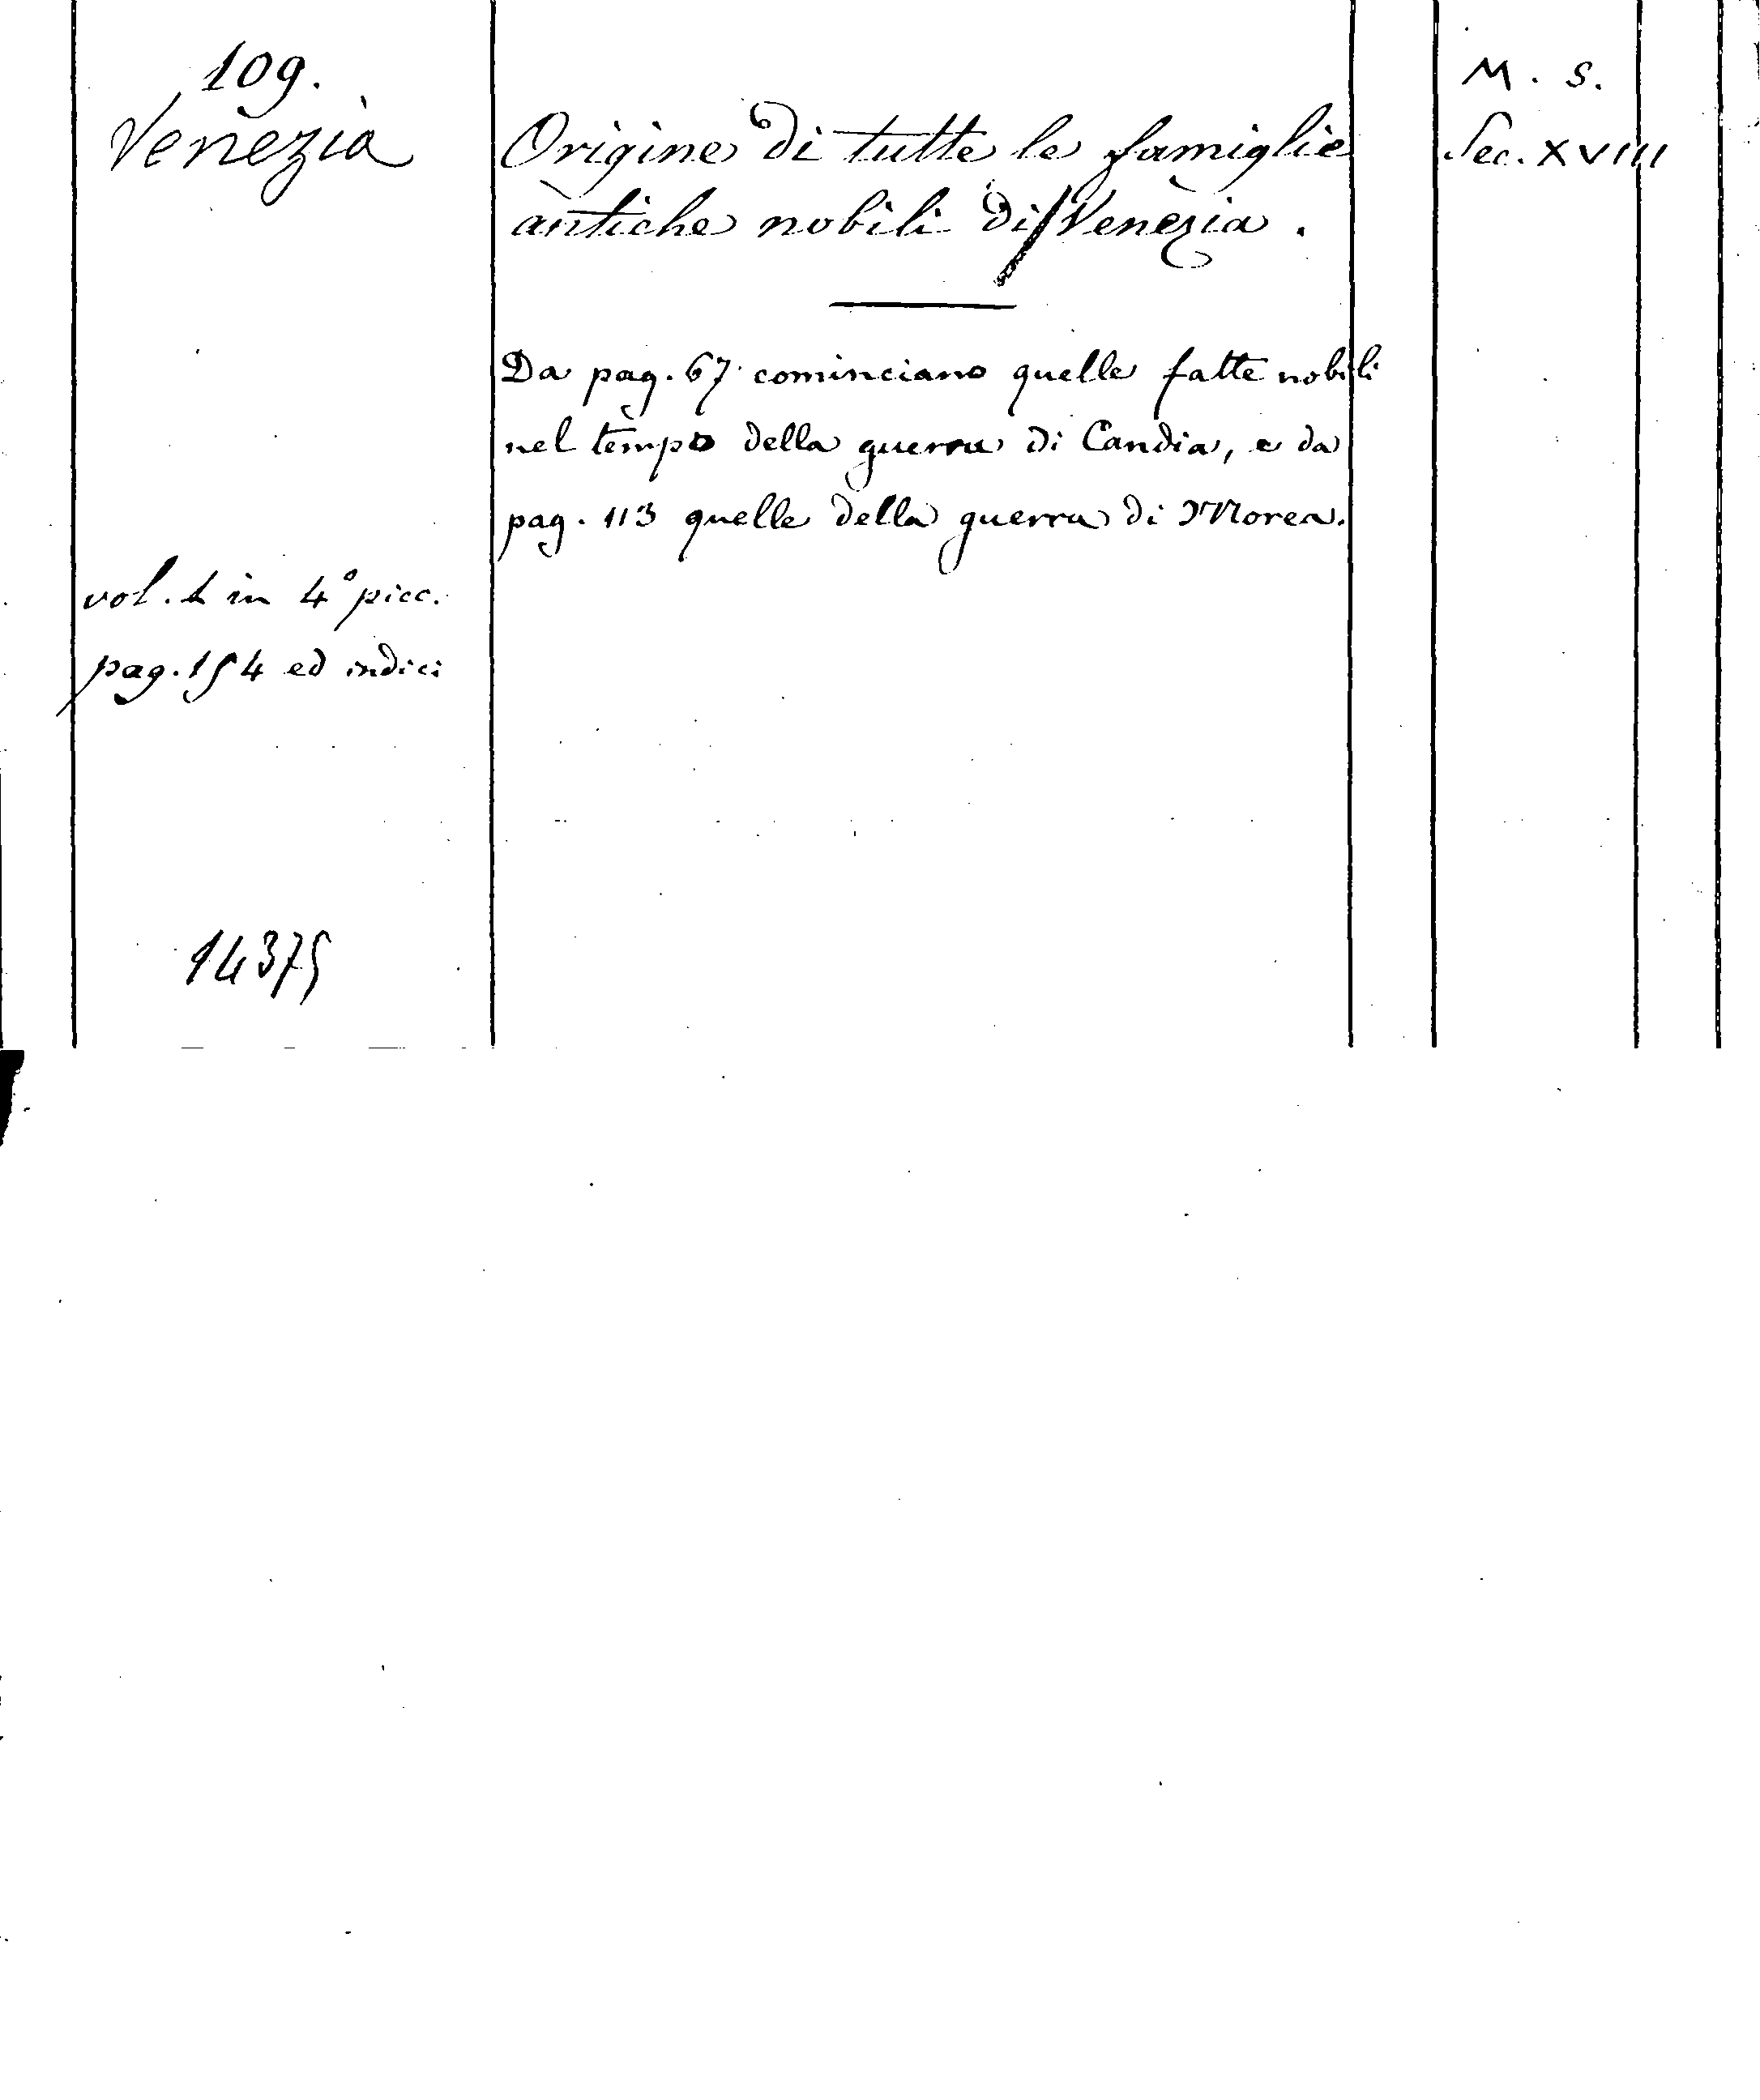 109.
Venezia
Origine di tutte le famiglie
antiche nobili di Venezia.
M. S.
Sec. XVIII
Da pag. 67 cominciano quelle fatte nobili
nel tempo della guerra di Candia, e da
pag. 113 quelle della guerra di Morea.
vol. 1 in 4° picc.
pag. 154 ed indici
14375